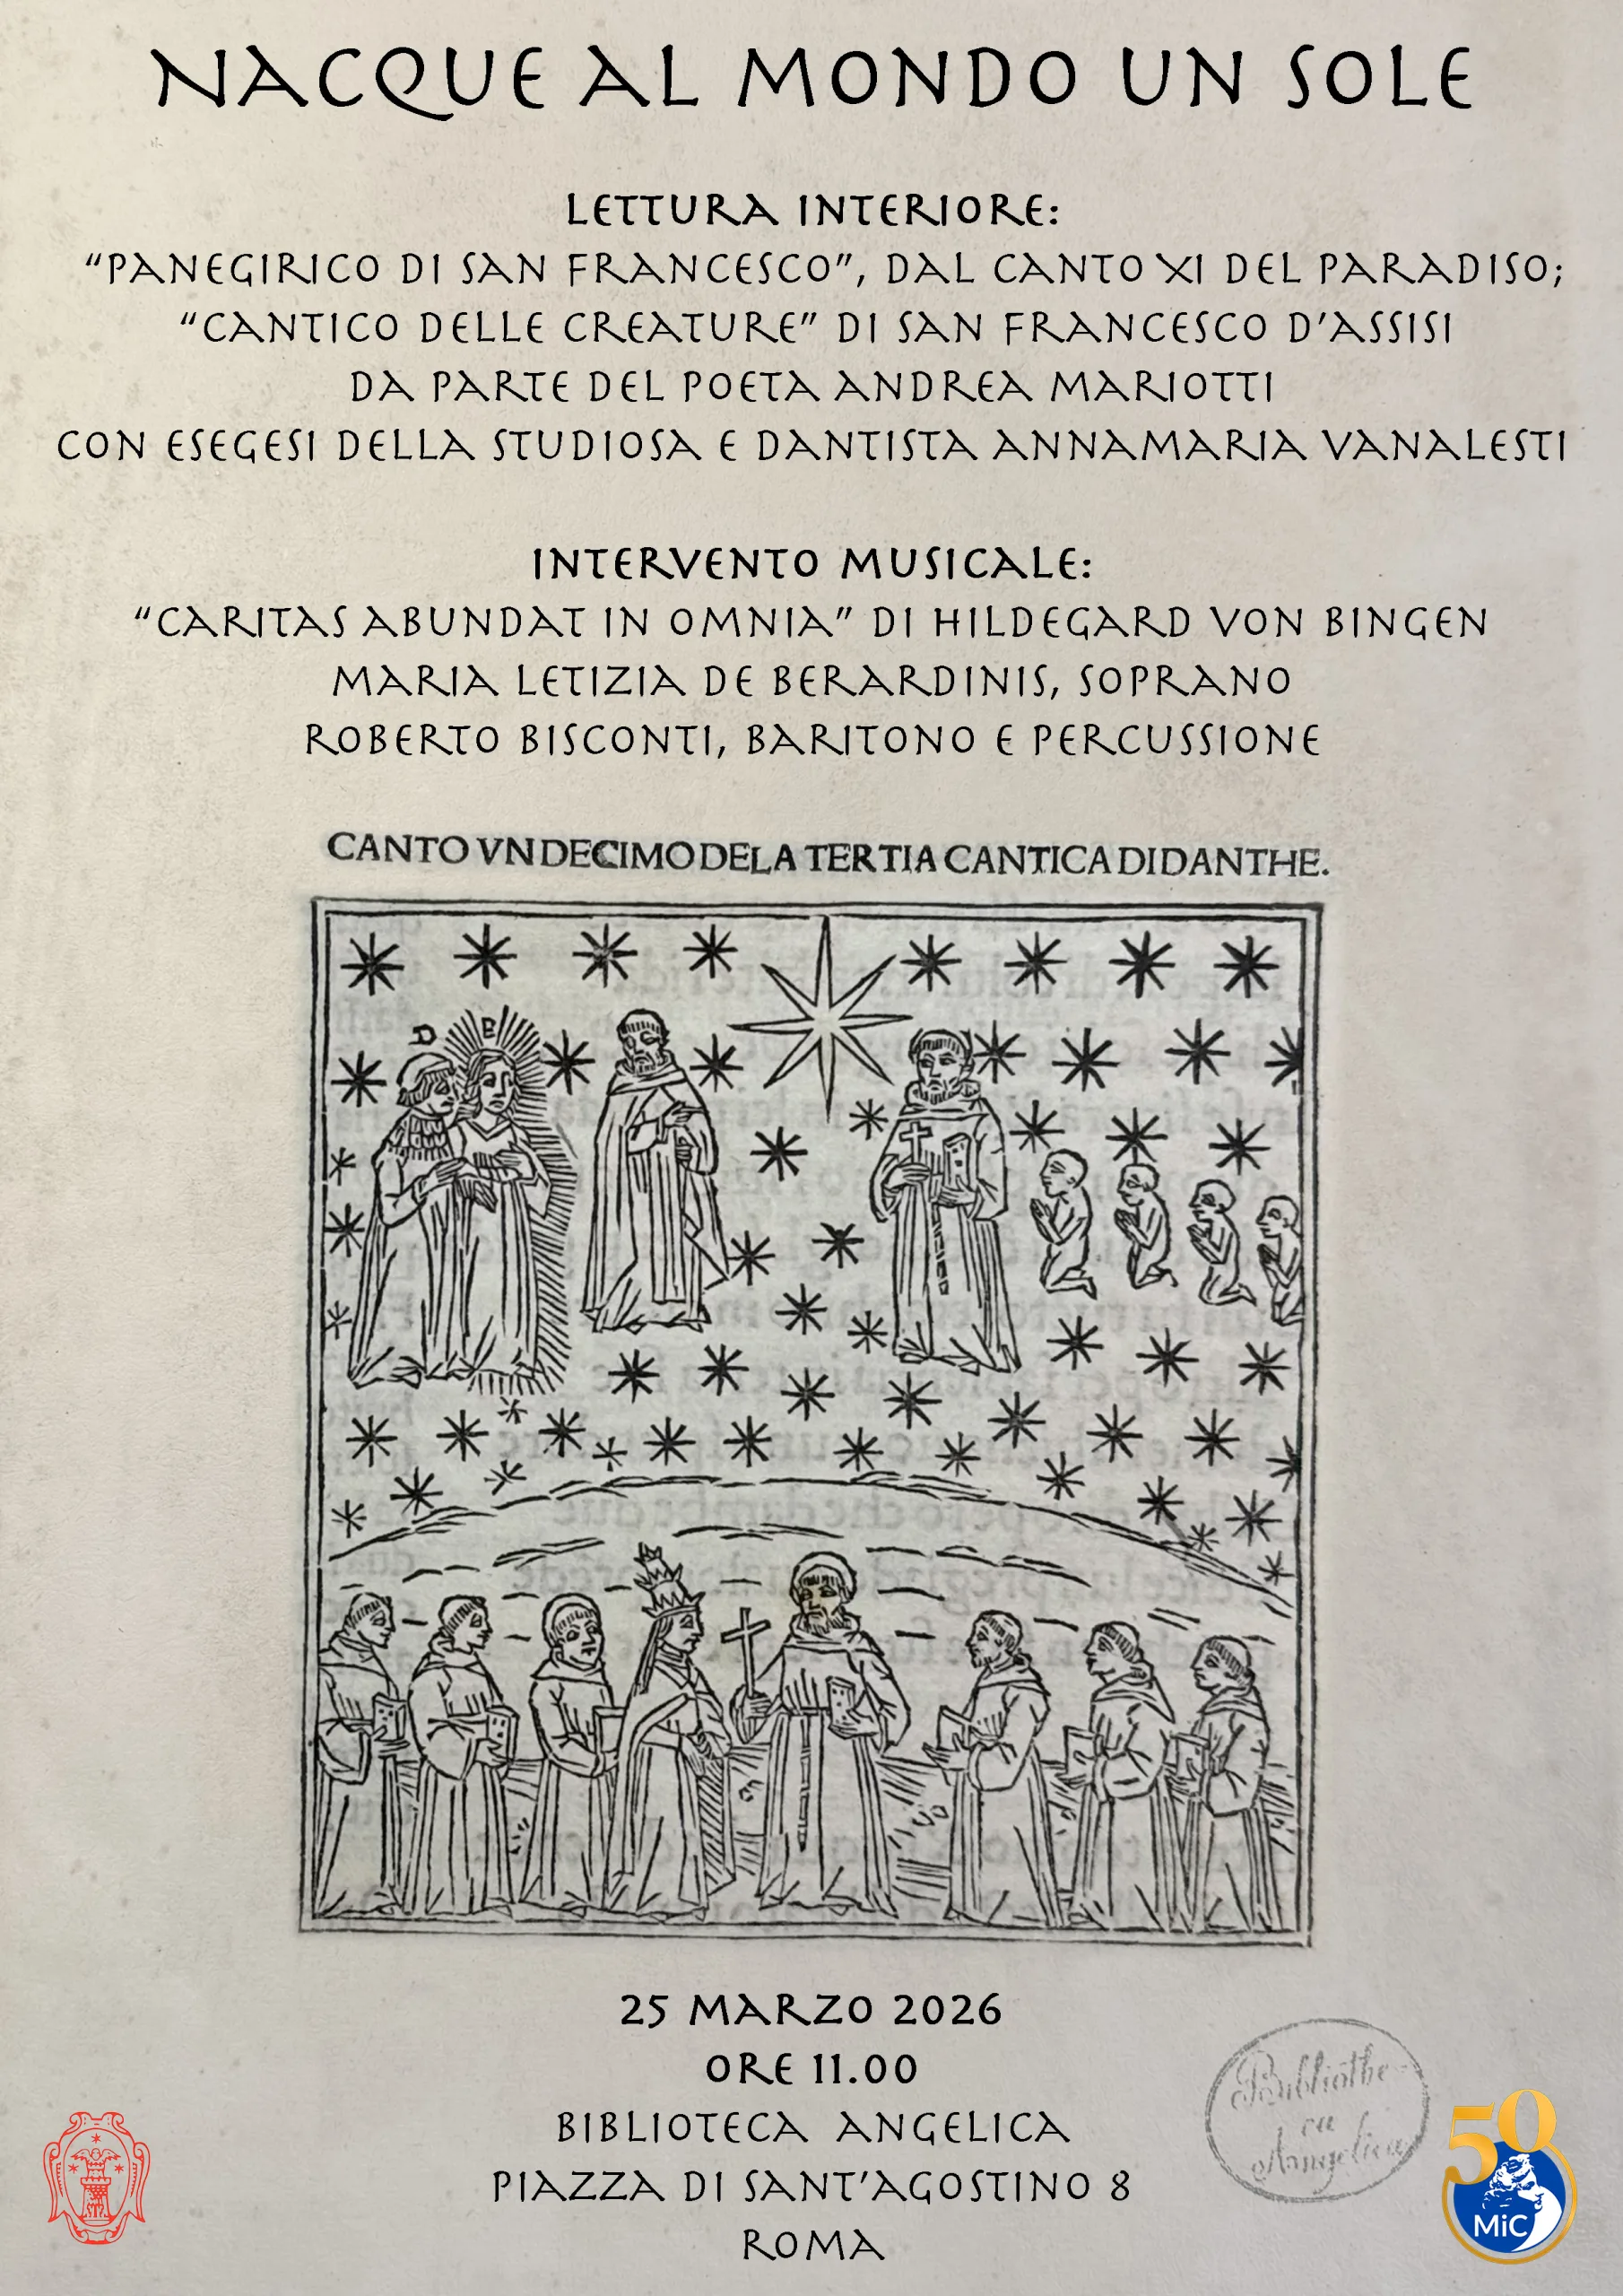 NACQUE AL MONDO UN SOLE
LETTURA INTERIORE:
“PANEGIRICO DI SAN FRANCESCO”, DAL CANTO XI DEL PARADISO;
“CANTICO DELLE CREATURE” DI SAN FRANCESCO D’ASSISI
DA PARTE DEL POETA ANDREA MARIOTTI
CON ESEGESI DELLA STUDIOSA E DANTISTA ANNAMARIA VANALESTI
INTERVENTO MUSICALE:
“CARITAS ABUNDAT IN OMNIA” DI HILDEGARD VON BINGEN
MARIA LETIZIA DE BERARDINIS, SOPRANO
ROBERTO BISCONTI, BARITONO E PERCUSSIONE
CANTO VNDECIMO DE LA TERTIA CANTICA DI DANTHE.
D B
25 MARZO 2026
ORE 11.00
BIBLIOTECA ANGELICA
PIAZZA DI SANT’AGOSTINO 8
ROMA
Bibliothe-
ca
Angelica
50
MiC